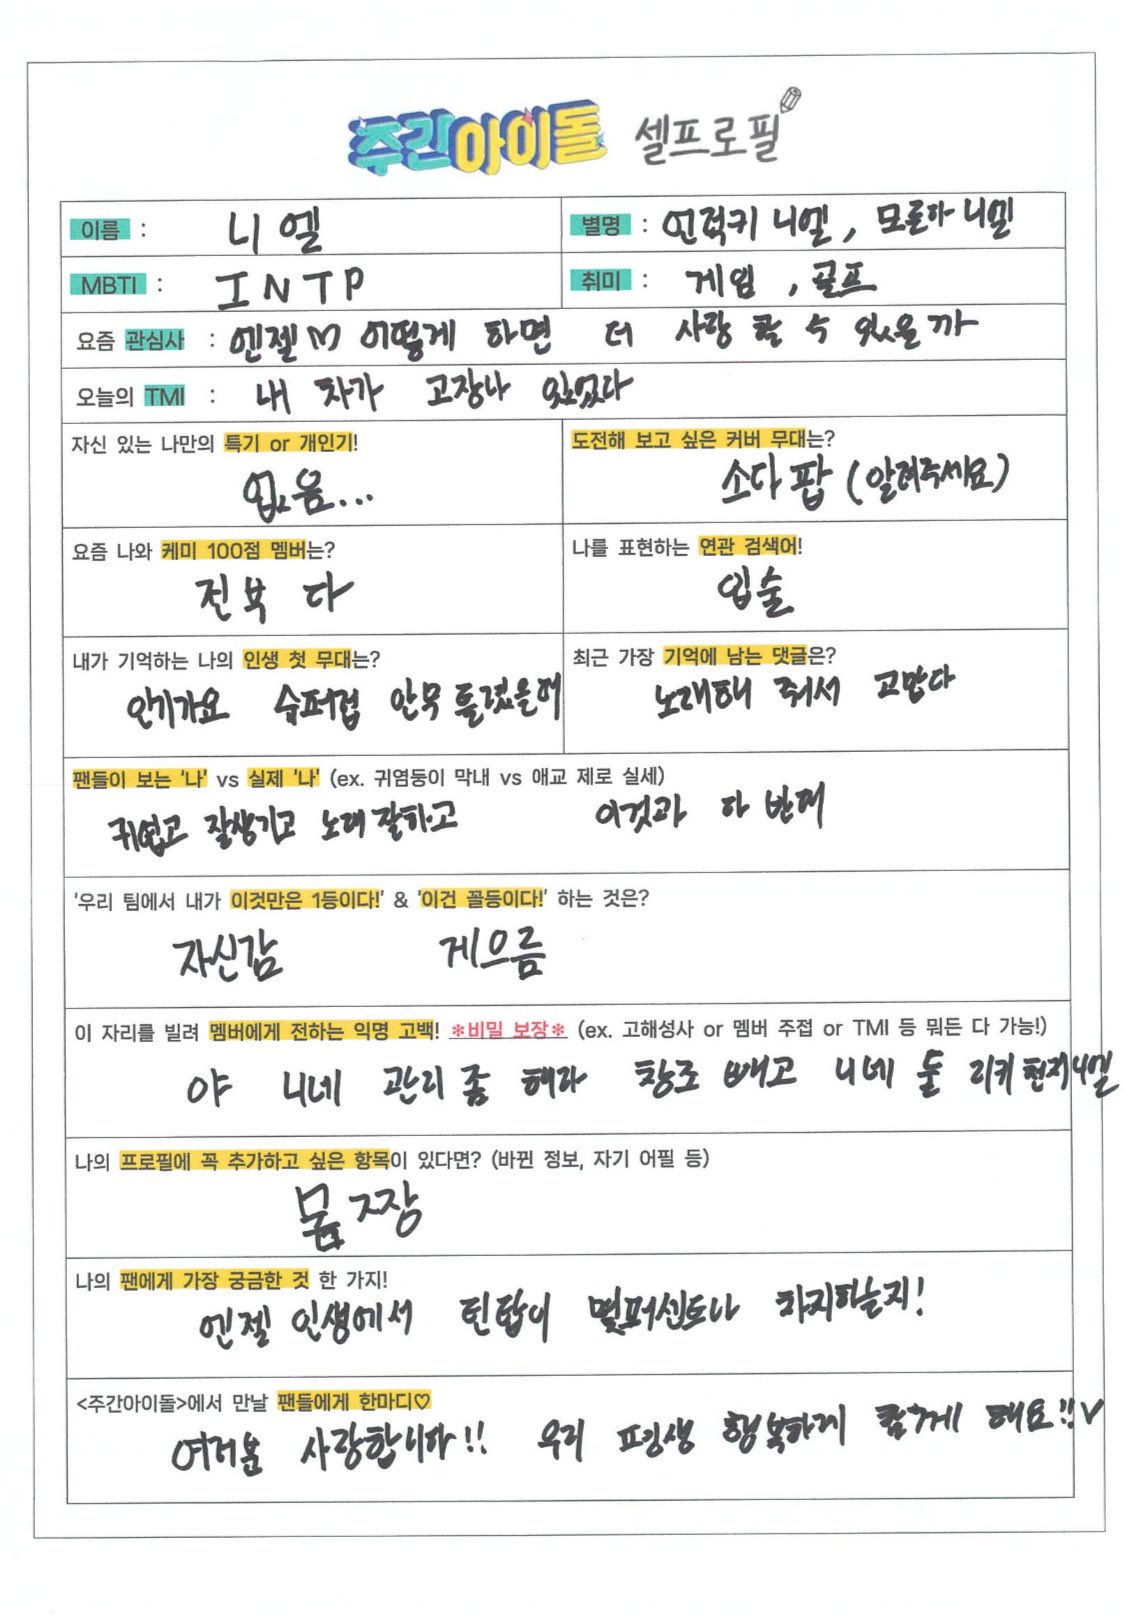 주간아이돌 셀프로필
이름 : 니엘
별명 : 언럭키 니엘, 모른아 니엘
MBTI : INTP
취미 : 게임, 골프
요즘 관심사 : 엔젤♡ 어떻게 하면 더 사랑 할 수 있을까
오늘의 TMI : 내 차가 고장나 있었다
자신 있는 나만의 특기 or 개인기!
없음...
도전해 보고 싶은 커버 무대는?
소다팝 (알려주세요)
요즘 나와 케미 100점 멤버는?
전부 다
나를 표현하는 연관 검색어!
입술
내가 기억하는 나의 인생 첫 무대는?
인기가요 수퍼럽 안무 틀렸을때
최근 가장 기억에 남는 댓글은?
노래해 줘서 고맙다
팬들이 보는 '나' vs 실제 '나' (ex. 귀염둥이 막내 vs 애교 제로 실세)
귀엽고 잘생기고 노래 잘하고 이것과 다 반대
'우리 팀에서 내가 이것만은 1등이다!' & '이건 꼴등이다!' 하는 것은?
자신감 게으름
이 자리를 빌려 멤버에게 전하는 익명 고백! *비밀 보장* (ex. 고해성사 or 멤버 주접 or TMI 등 뭐든 다 가능!)
야 니네 관리 좀 해라 창조 빼고 니네 둘 리키 천지 니엘
나의 프로필에 꼭 추가하고 싶은 항목이 있다면? (바뀐 정보, 자기 어필 등)
몸짱
나의 팬에게 가장 궁금한 것 한 가지!
엔젤 인생에서 틴탑이 몇퍼센트나 차지하는지!
<주간아이돌>에서 만날 팬들에게 한마디♡
여러분 사랑합니다!! 우리 평생 행복하게 함께 해요!!